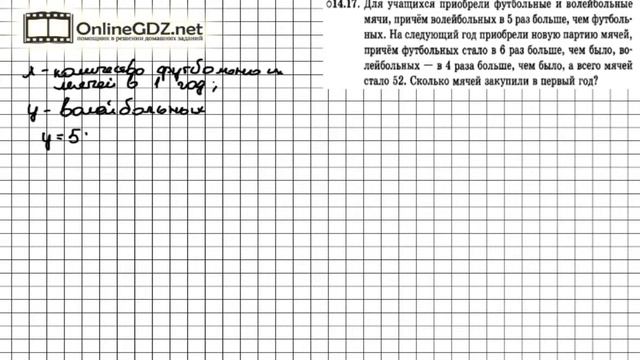 OnlineGDZ.net
помощник в решении домашних заданий
14.17. Для учащихся приобрели футбольные и волейбольные
мячи, причём волейбольных в 5 раз больше, чем футболь-
ных. На следующий год приобрели новую партию мячей,
причём футбольных стало в 6 раз больше, чем было, во-
лейбольных — в 4 раза больше, чем было, а всего мячей
стало 52. Сколько мячей закупили в первый год?
х - количество футбольных
мячей в 1 год;
у - волейбольных
у = 5 ·